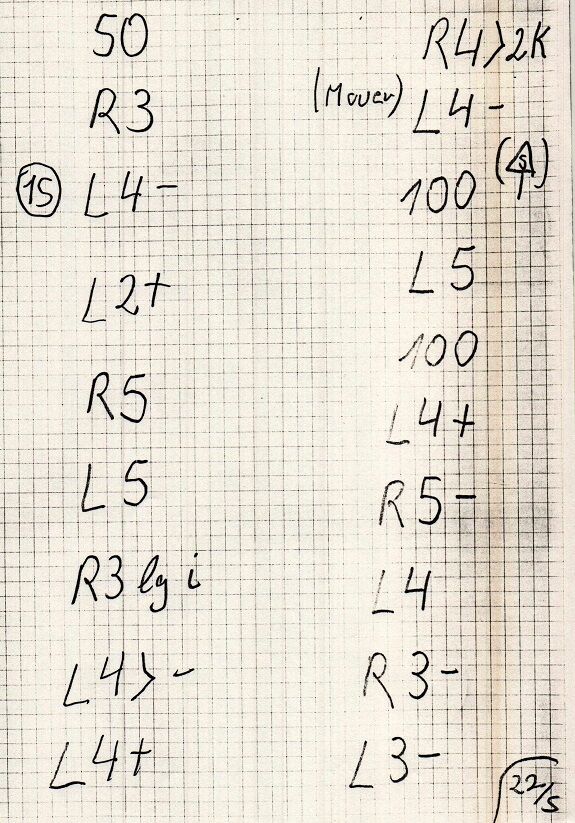 50
R3
15 L4-
L2+
R5
L5
R3 lg i
L4> -
L4+
R4>2K
(Mauer) L4-
100 (5)
L5
100
L4+
R5-
L4
R3-
L3-
22/5